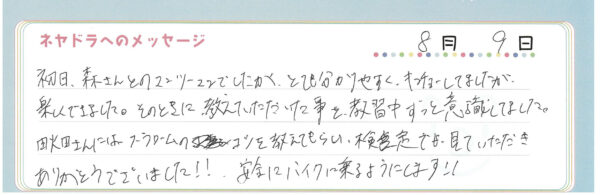 ネヤドラへのメッセージ
8月 9日
初日、森さんとのマンツーマンでしたが、とても分かりやすく、キンチョーしてましたが、
楽しくできました。そのときに教えていただいた事を教習中ずっと意識してました。
田さんには フラロームの コツを教えてもらい、検定でも見ていただき
ありがとうございました!! 安全にバイクに乗るようにします!!